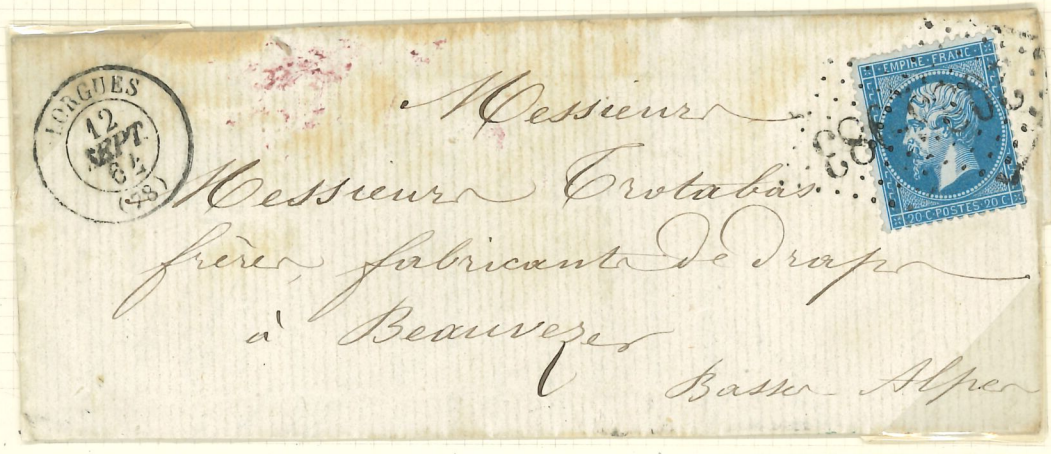 LORGUES
12
SEPT.
64
(78)
EMPIRE FRANC
20 C POSTES 20 C
Messieurs
Messieurs Trotabas
frères fabricants de draps
à Beauvezer
Basses Alpes